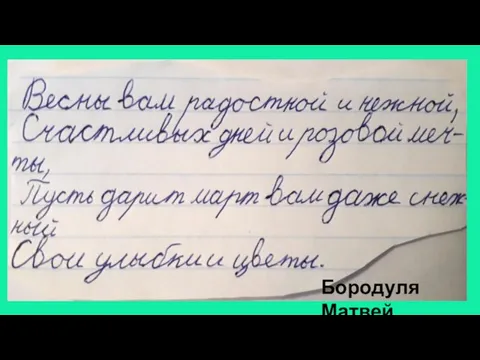 Весны вам радостной и нежной,
Счастливых дней и розовой меч-
ты,
Пусть дарит март вам даже снеж-
ный
Свои улыбки и цветы.
Бородуля
Матвей